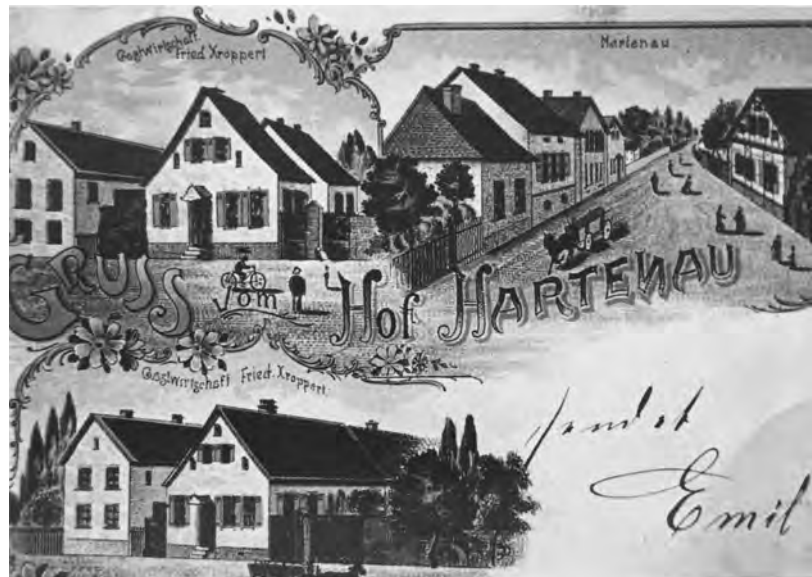 Gastwirtschaft
Fried Kroppert
Hartenau
GRUSS vom Hof HARTENAU
Gastwirtschaft Fried. Kroppert.
sendet
Emil